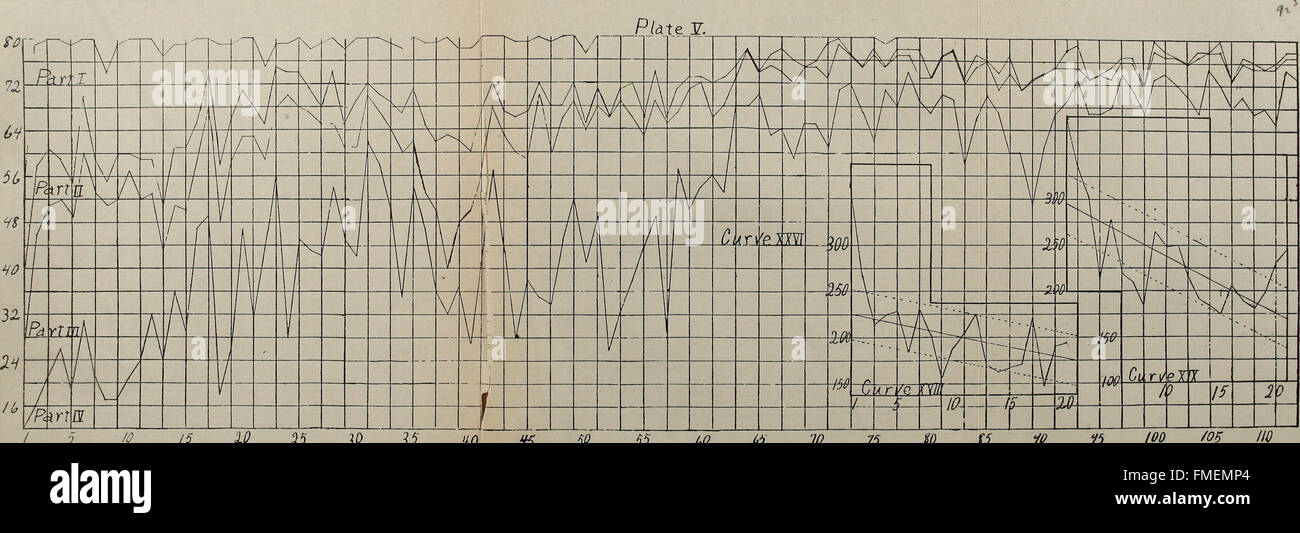 923
Plate V.
80
Part I
72
64
56
Part II
48
Curve XXVI
40
32
Part III
24
16
Part IV
1 5 10 15 20 25 30 35 40 45 50 55 60 65 70 75 80 85 90 95 100 105 110
300
250
200
150
Curve XVIII
1 5 10 15 20
300
250
200
150
100
Curve XIX
10 15 20
alamy stock photo
alamy
alamy
alamy
a
a
a
alamy
Image ID: FMEMP4
www.alamy.com